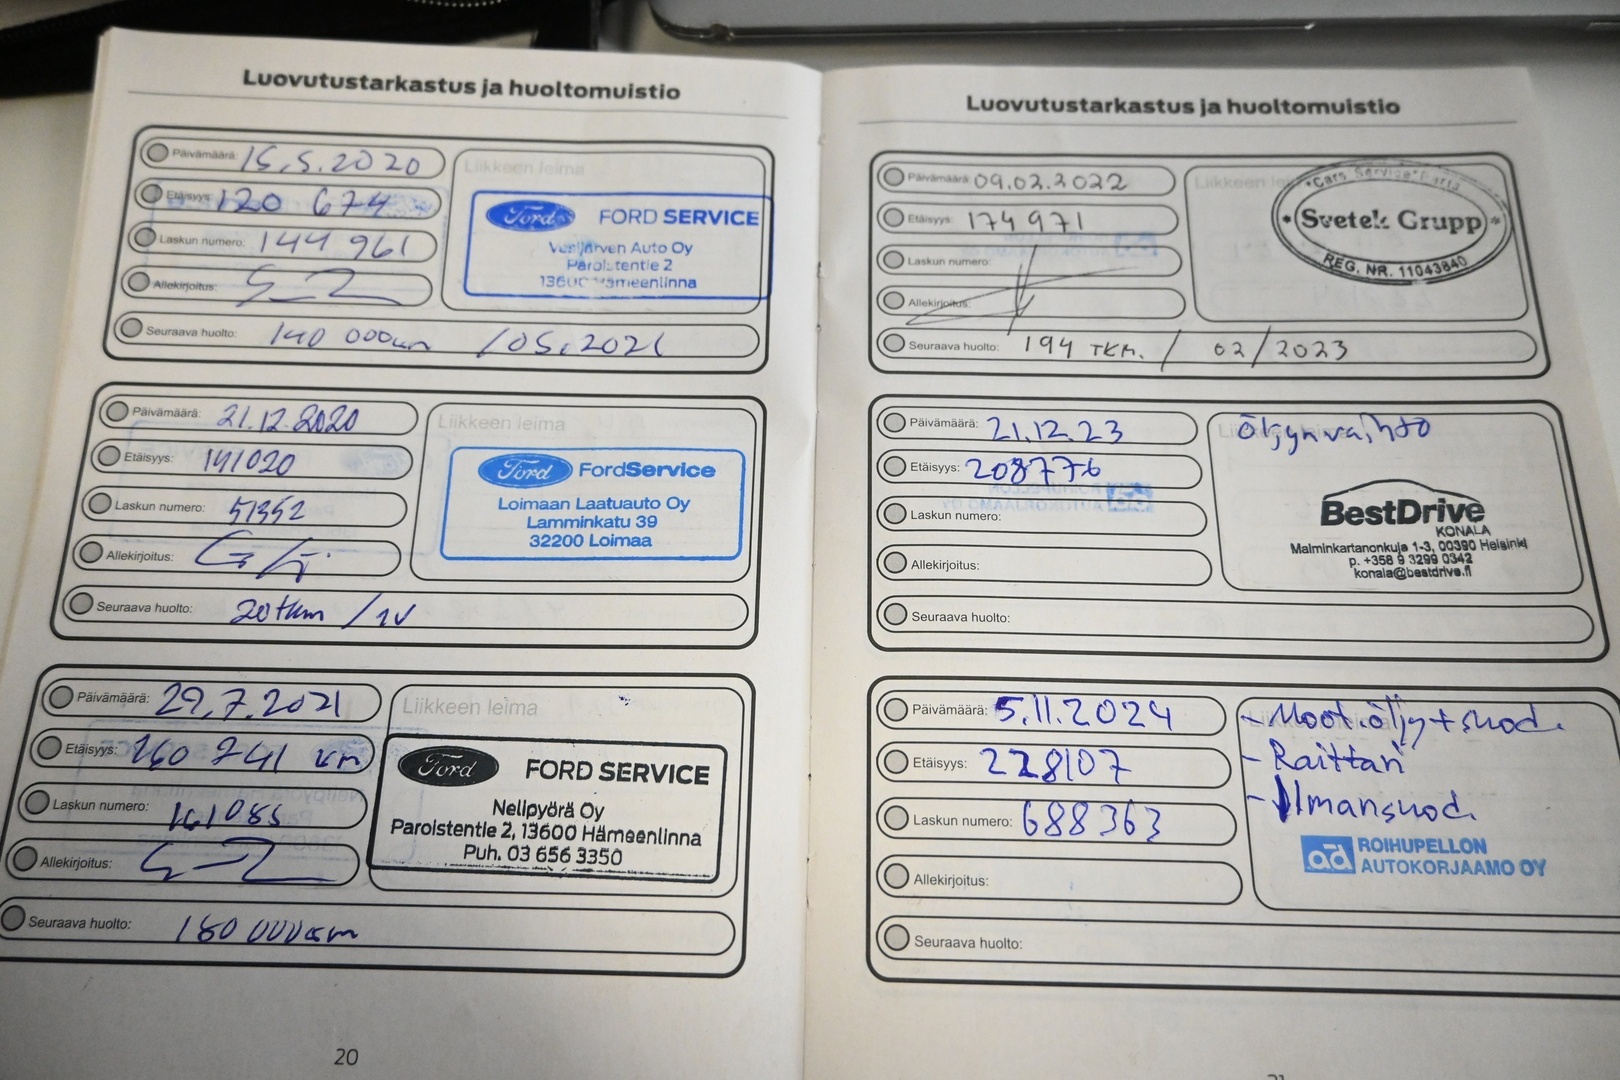 Luovutustarkastus ja huoltomuistio
Päivämäärä: 15.5.2020
Etäisyys: 120 674
Laskun numero: 144 961
Allekirjoitus:
Seuraava huolto: 140 000km /05.2021
Liikkeen leima
Ford FORD SERVICE
Auto Oy
Parolstentie 2
Hämeenlinna
Päivämäärä: 21.12.2020
Etäisyys: 141020
Laskun numero: 51352
Allekirjoitus:
Seuraava huolto: 20tkm / 1v
Liikkeen leima
Ford FordService
Loimaan Laatuauto Oy
Lamminkatu 39
32200 Loimaa
Päivämäärä: 29.7.2021
Etäisyys: 160 741 km
Laskun numero: 161085
Allekirjoitus:
Seuraava huolto: 180 000km
Liikkeen leima
Ford FORD SERVICE
Nelipyörä Oy
Parolstentie 2, 13600 Hämeenlinna
Puh. 03 656 3350
20
Luovutustarkastus ja huoltomuistio
Päivämäärä: 09.02.2022
Etäisyys: 174 971
Laskun numero:
Allekirjoitus:
Seuraava huolto: 194 TKM. / 02/2023
Liikkeen
*Cars Service Parts*
Svetek Grupp
REG. NR. 11043840
Päivämäärä: 21.12.23
Etäisyys: 208776
Laskun numero:
Allekirjoitus:
Seuraava huolto:
öljynvaihto
BestDrive
KONALA
Malminkartanonkuja 1-3, 00390 Helsinki
p. +358 9 3299 0342
konala@bestdrive.fi
Päivämäärä: 5.11.2024
Etäisyys: 228107
Laskun numero: 688363
Allekirjoitus:
Seuraava huolto:
- Moot.öljy+suod.
- Raitisan
- Ilmansuod.
ad ROIHUPELLON
AUTOKORJAAMO OY